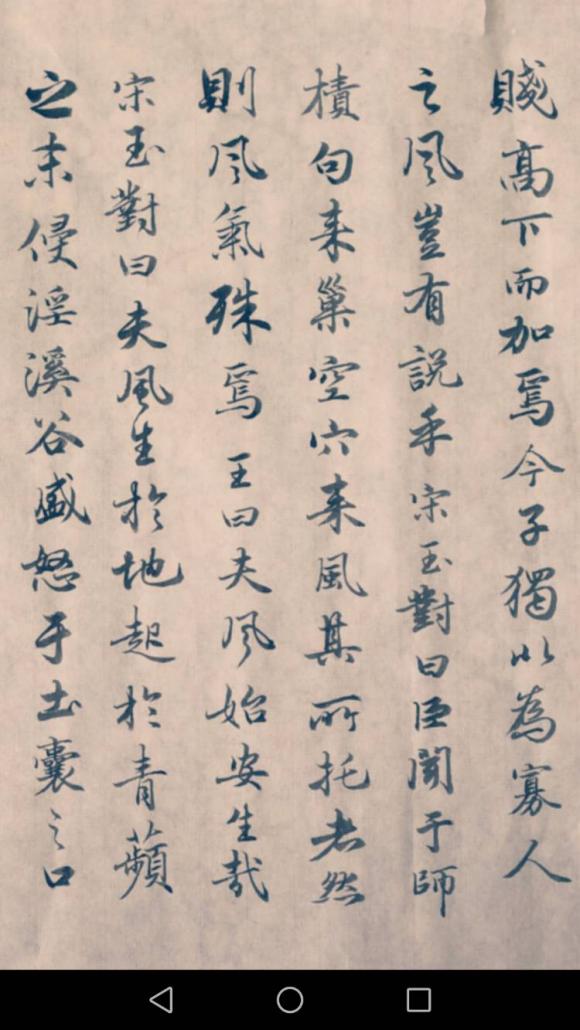 賤高下而加焉今子獨以為寡人
之風豈有説乎宋玉對曰臣聞于師
樍句来巢空穴来風其所托者然
則風氣殊焉王曰夫風始安生哉
宋玉對曰夫風生於地起於青蘋
之末侵淫溪谷盛怒于土囊之口